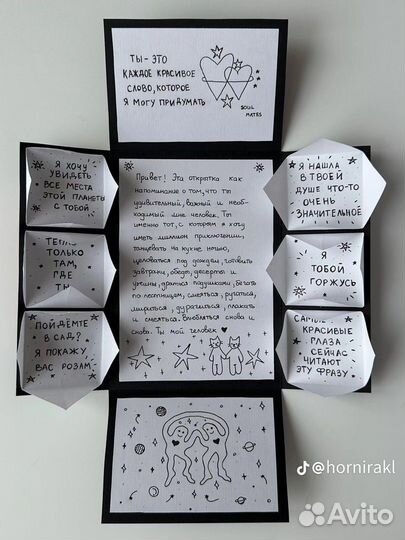 ТЫ - ЭТО
КАЖДОЕ КРАСИВОЕ
СЛОВО, КОТОРОЕ
Я МОГУ ПРИДУМАТЬ
SOUL
MATES
Я ХОЧУ
УВИДЕТЬ
ВСЕ МЕСТА
ЭТОЙ ПЛАНЕТЫ
С ТОБОЙ
ТЕПЛО
ТОЛЬКО
ТАМ,
ГДЕ
ТЫ
ПОЙДЁМТЕ
В САД?
Я ПОКАЖУ
ВАС РОЗАМ
Привет! Эта открытка как
напоминание о том, что ты
удивительный, важный и необ-
ходимый мне человек. Ты
именно тот, с которым я хочу
иметь миллион приключений,
танцевать на кухне ночью,
целоваться под дождём, готовить
завтраки, обеды, десерты и
ужины, драться подушками, бегать
по лестницам, смеяться, ругаться,
мириться, дурачиться, плакать
и смеяться. Влюбляться снова и
снова. Ты мой человек ♥
Я НАШЛА
В ТВОЕЙ
ДУШЕ ЧТО-ТО
ОЧЕНЬ
ЗНАЧИТЕЛЬНОЕ
Я
ТОБОЙ
ГОРЖУСЬ
САМЫЕ
КРАСИВЫЕ
ГЛАЗА
СЕЙЧАС
ЧИТАЮТ
ЭТУ ФРАЗУ
@hornirakl
Avito